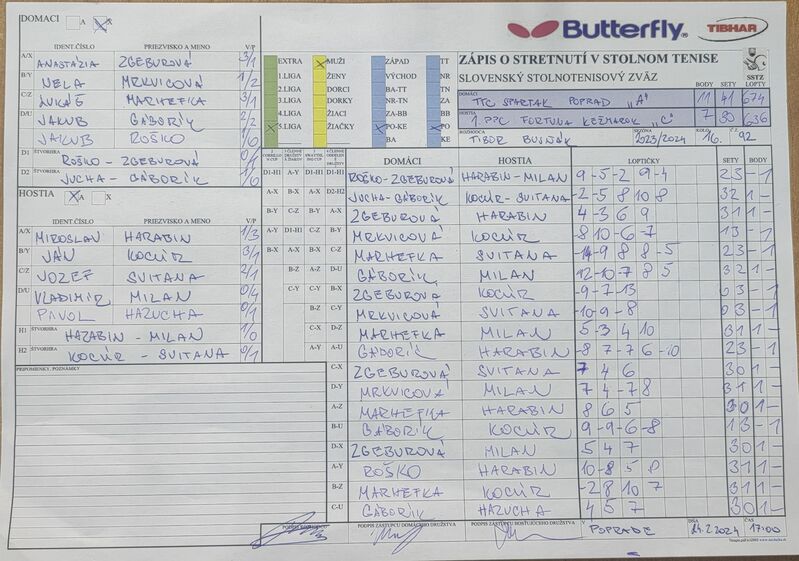 DOMÁCI A X
IDENT.ČÍSLO PRIEZVISKO A MENO V/P
A/X ANASTÁZIA ZGEBUROVÁ 3/1
B/Y NELA MRKVICOVÁ 1/2
C/Z LUKÁŠ MARHEFKA 3/1
D/U JAKUB GÁBORÍK 2/2
JAKUB ROŠKO 1/0
D1 ŠTVORHRA ROŠKO - ZGEBUROVÁ 0/1
D2 ŠTVORHRA JUCHA - GÁBORÍK 1/0
HOSTIA A X
IDENT.ČÍSLO PRIEZVISKO A MENO V/P
A/X MIROSLAV HARABIN 1/3
B/Y JÁN KOCÚR 3/1
C/Z JOZEF SVITANA 2/1
D/U VLADIMÍR MILAN 0/4
PAVOL HAZUCHA 0/1
H1 ŠTVORHRA HARABIN - MILAN 1/0
H2 ŠTVORHRA KOCÚR - SVITANA 0/1
PRIPOMIENKY, POZNÁMKY
Butterfly
TIBHAR
ZÁPIS O STRETNUTÍ V STOLNOM TENISE
SLOVENSKÝ STOLNOTENISOVÝ ZVÄZ
SSTZ
EXTRA MUŽI ZÁPAD TT
1.LIGA ŽENY VÝCHOD NR
2.LIGA DORCI BA-TT TN
3.LIGA DORKY NR-TN ZA
4.LIGA ŽIACI ZA-BB BB
5.LIGA ŽIAČKY PO-KE PO
BA KE
BODY SETY LOPTY
DOMÁCI TTC SPARTAK POPRAD "A" 11 41 674
HOSTIA 1. PPC FORTUNA KEŽMAROK "C" 7 30 636
ROZHODCA TIBOR SEZÓNA 2023/2024 KOLO 16. Č.Z. 92
DOMÁCI HOSTIA LOPTIČKY SETY BODY
D1-H1 A-Y D1-H1 D1-H1 ROŠKO-ZGEBUROVÁ HARABIN-MILAN 9 -5 -2 9 -4 2 3 - 1
A-X B-X A-X D2-H2 JUCHA-GÁBORÍK KOCÚR-SVITANA -2 -5 8 10 8 3 2 1 -
B-Y C-Z B-Y A-X ZGEBUROVÁ HARABIN 4 -3 6 9 3 1 1 -
A-Y D1-H1 C-Z B-Y MRKVICOVÁ KOCÚR -8 10 -6 -7 1 3 - 1
B-X A-X B-X C-Z MARHEFKA SVITANA -14 -9 8 8 -5 2 3 - 1
B-Z A-Z D-U GÁBORÍK MILAN 12 -10 -7 8 5 3 2 1 -
C-Y C-Y B-X ZGEBUROVÁ KOCÚR -9 -7 -13 0 3 - 1
B-Z C-Y MRKVICOVÁ SVITANA -10 -9 -8 0 3 - 1
C-X D-Z MARHEFKA MILAN 5 -3 4 10 3 1 1 -
A-Y A-U GÁBORÍK HARABIN -8 7 -7 6 -10 2 3 - 1
C-X ZGEBUROVÁ SVITANA 7 4 6 3 0 1 -
D-Y MRKVICOVÁ MILAN 7 4 -7 8 3 1 1 -
A-Z MARHEFKA HARABIN 8 6 5 3 0 1 -
B-U GÁBORÍK KOCÚR -9 9 -6 -8 1 3 - 1
D-X ZGEBUROVÁ MILAN 5 4 7 3 0 1 -
A-Y ROŠKO HARABIN 10 -8 5 8 3 1 1 -
B-Z MARHEFKA KOCÚR -2 8 10 7 3 1 1 -
C-U GÁBORÍK HAZUCHA 4 5 7 3 0 1 -
PODPIS ZÁSTUPCU DOMÁCEHO DRUŽSTVA PODPIS ZÁSTUPCU HOSŤUJÚCEHO DRUŽSTVA V POPRADE DŇA 24.2.2024 ČAS 17:00